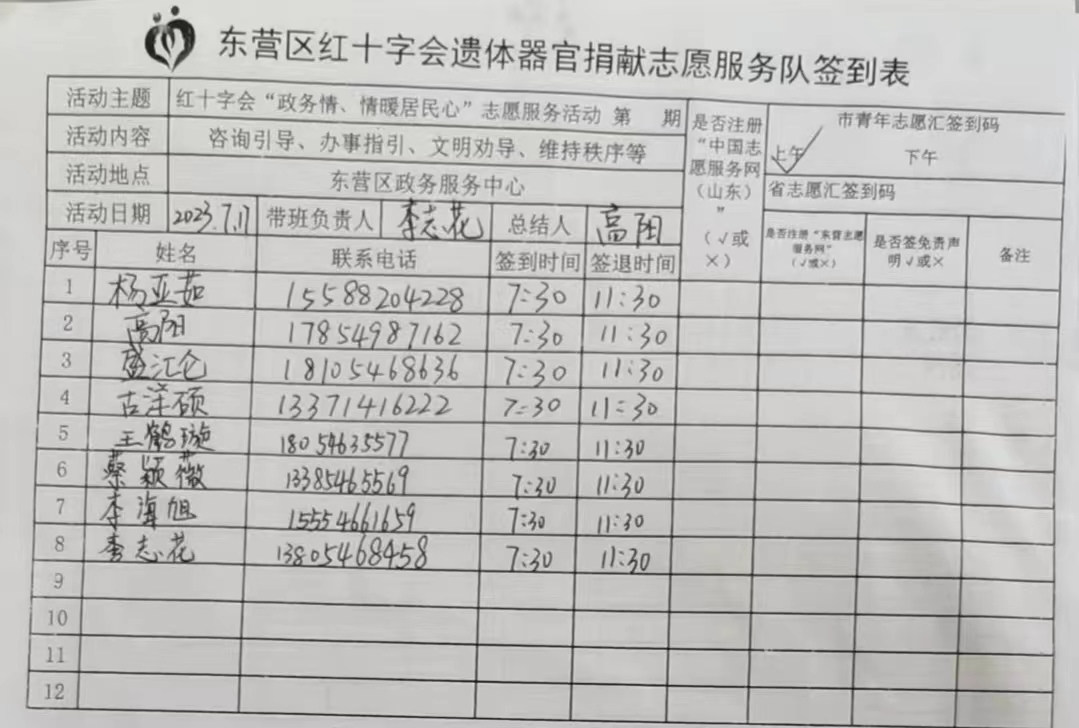 东营区红十字会遗体器官捐献志愿服务队签到表
活动主题 红十字会“政务情、情暖居民心”志愿服务活动 第 期 是否注册“中国志愿服务网（山东）”（√或×） 市青年志愿汇签到码
上午√ 下午
活动内容 咨询引导、办事指引、文明劝导、维持秩序等
活动地点 东营区政务服务中心 省志愿汇签到码
活动日期 2023.7.17 带班负责人 李志花 总结人 高阳
序号 姓名 联系电话 签到时间 签退时间 是否注册“东营志愿服务网”（√或×） 是否签免责声明√或× 备注
1 杨亚茹 15588204228 7:30 11:30
2 高阳 17854987162 7:30 11:30
3 盛江仑 18105468636 7:30 11:30
4 古泽硕 13371416222 7:30 11:30
5 王鹤璇 18054635577 7:30 11:30
6 蔡颖薇 13385465569 7:30 11:30
7 李海旭 15554661659 7:30 11:30
8 李志花 13805468458 7:30 11:30
9
10
11
12